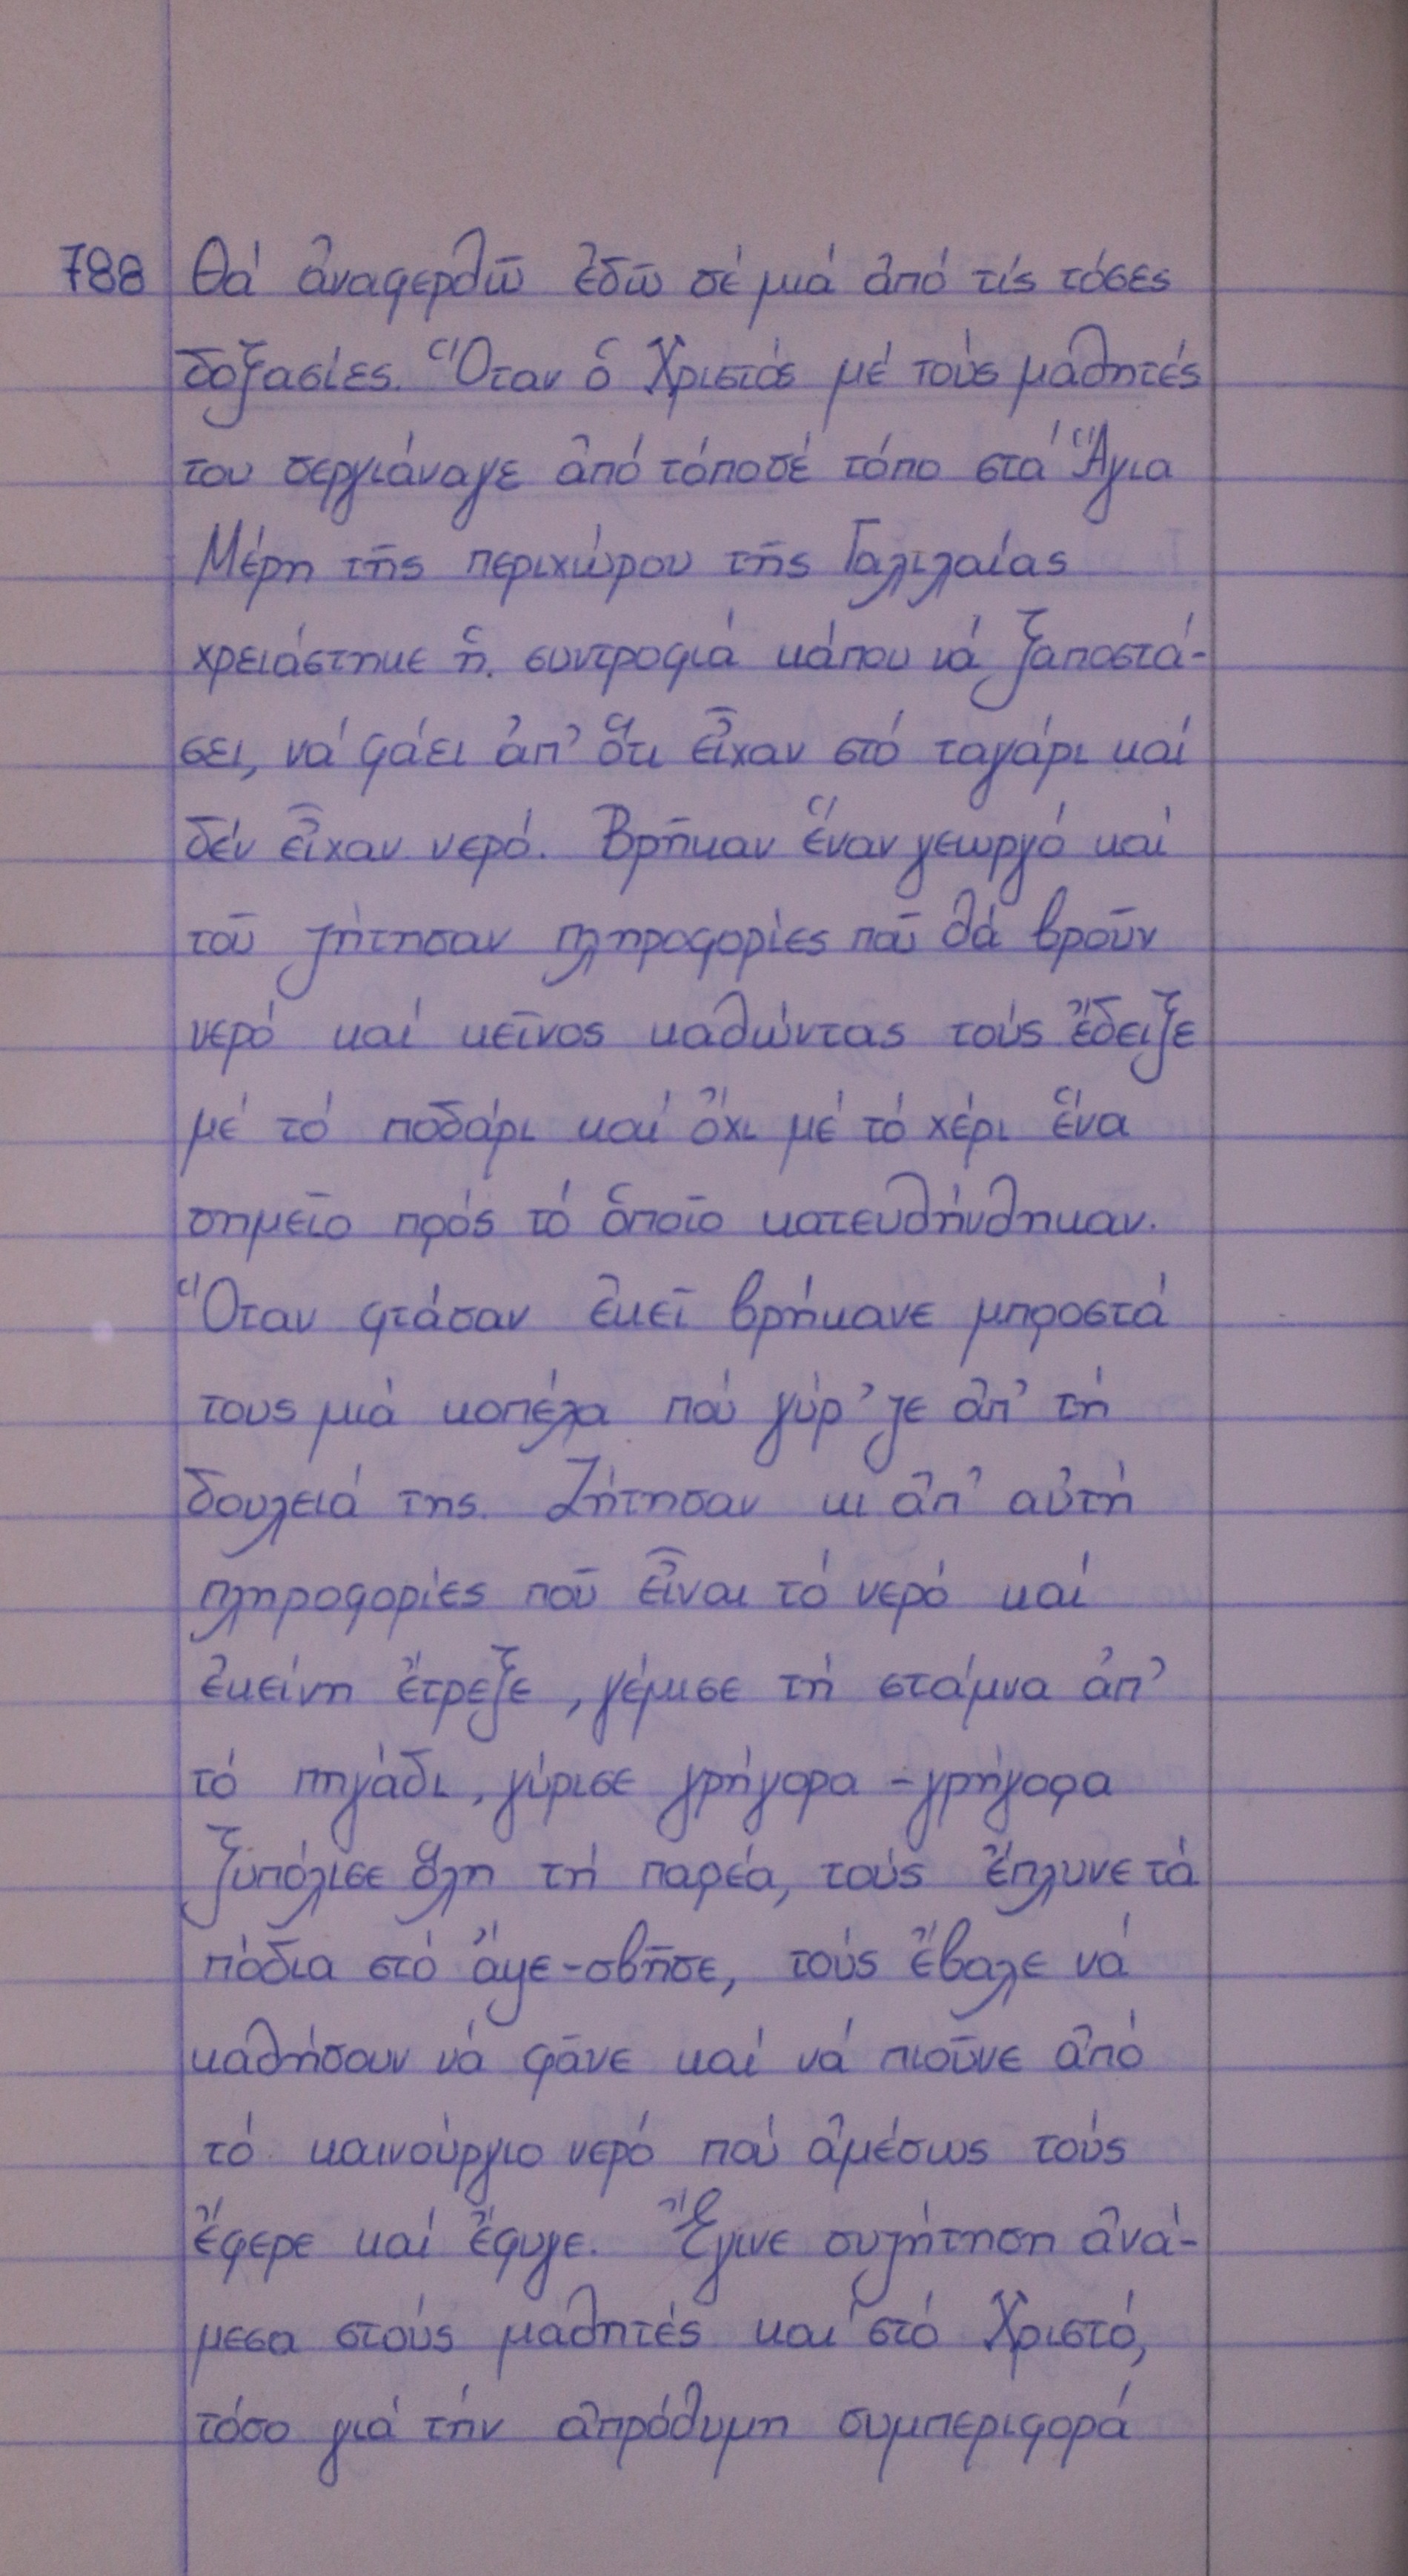 788 Θά ἀναφερθῶ ἐδῶ σέ μιά ἀπό τίς τόσες
δοξασίες. Ὅταν ὁ Χριστός μέ τούς μαθητές
του σεργιάναγε ἀπό τόπο σέ τόπο στά Ἅγια
Μέρη τῆς περιχώρου τῆς Γαλιλαίας
χρειάστηκε ἡ συντροφιά κάπου νά ξαποστά-
σει, νά φάει ἀπ' ὅτι εἶχαν στό ταγάρι καί
δέν εἶχαν νερό. Βρῆκαν ἕναν γεωργό καί
τοῦ ζήτησαν πληροφορίες ποῦ θά βροῦν
νερό καί κεῖνος καθώντας τούς ἔδειξε
μέ τό ποδάρι καί ὄχι μέ τό χέρι ἕνα
σημεῖο πρός τό ὁποῖο κατευθήνθηκαν.
Ὅταν φτάσαν ἐκεῖ βρήκανε μπροστά
τους μιά κοπέλα πού γύρ'ζε ἀπ' τή
δουλειά της. Ζήτησαν κι ἀπ' αὐτή
πληροφορίες ποῦ εἶναι τό νερό καί
ἐκείνη ἔτρεξε, γέμισε τή στάμνα ἀπ'
τό πηγάδι, γύρισε γρήγορα - γρήγορα
ξυπόλισε ὅλη τή παρέα, τούς ἔπλυνε τά
πόδια στό ἄψε-σβῆσε, τούς ἔβαλε νά
καθήσουν νά φᾶνε καί νά πιοῦνε ἀπό
τό καινούργιο νερό πού ἀμέσως τούς
ἔφερε καί ἔφυγε. Ἔγινε συζήτηση ἀνά-
μεσα στούς μαθητές καί στό Χριστό,
τόσο γιά τήν ἀπρόθυμη συμπεριφορά